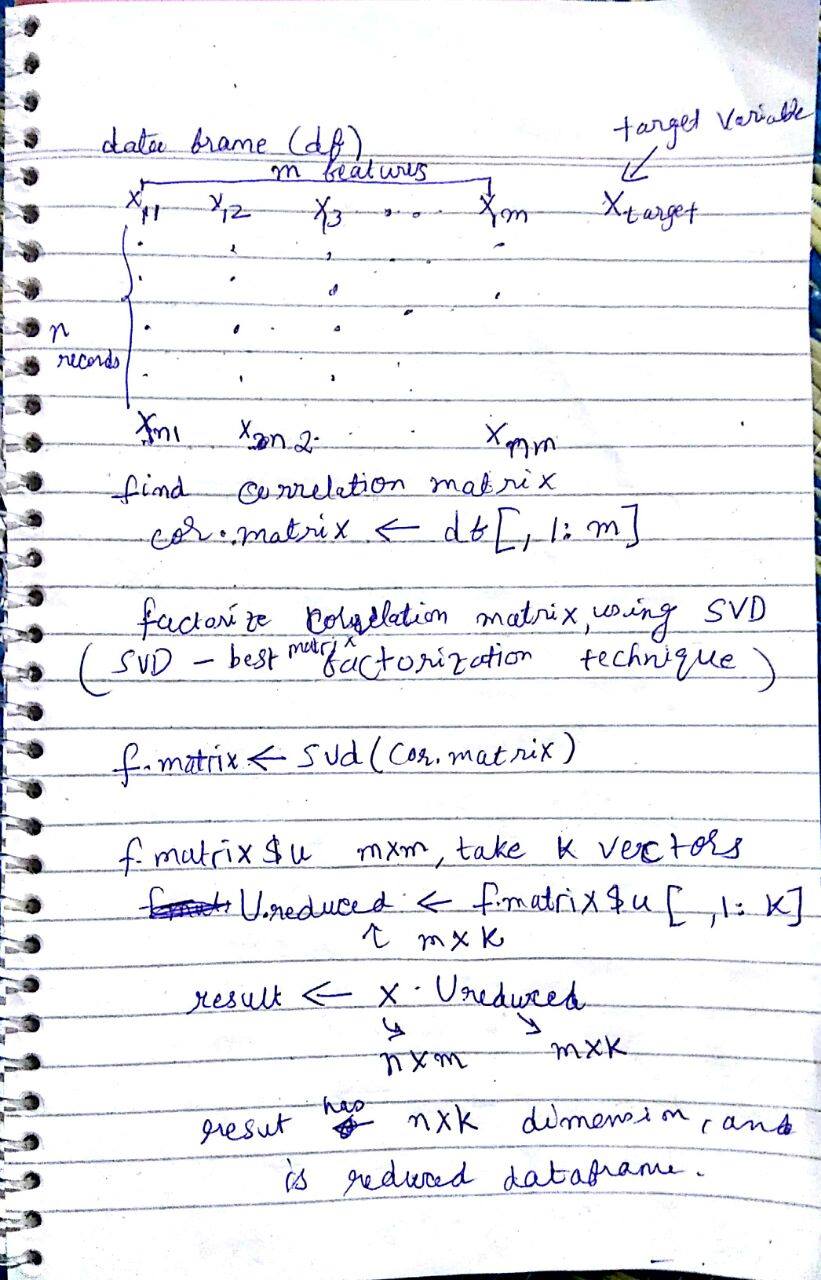 target Variable
data frame (df)
m features
X11 X12 X3 .... Xm Xtarget
n
records
Xn1 Xn2 . . Xnm
find correlation matrix
cor.matrix ← df[, 1: m]
factorize correlation matrix, using SVD
(SVD - best matrix factorization technique)
f.matrix ← svd(cor.matrix)
f.matrix $u mxm, take k vectors
U.reduced ← f.matrix $u [ ,1: k]
↑ mxk
result ← X . Ureduced
nxm mxk
resut has nxk dimension, and
is reduced dataframe.